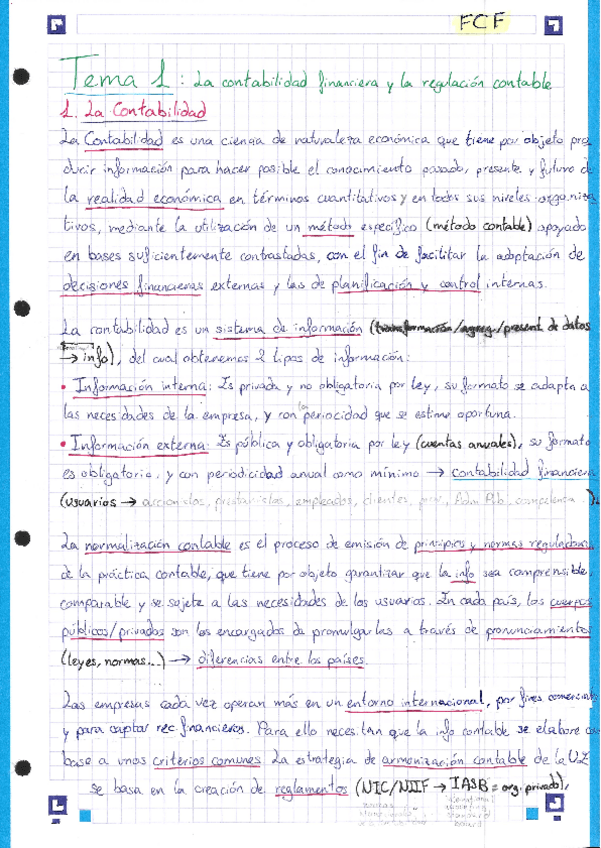 FCF
Tema 1: La contabilidad financiera y la regulación contable
1. La Contabilidad
La Contabilidad es una ciencia de naturaleza económica que tiene por objeto pro
ducir información para hacer posible el conocimiento pasado, presente y futuro d
la realidad económica en términos cuantitativos y en todos sus niveles organiza
tivos, mediante la utilización de un método específico (método contable) apoyado
en bases suficientemente contrastadas, con el fin de facilitar la adopción de
decisiones financieras externas y las de planificación y control internas.
La contabilidad es un sistema de información (transformación/agreg./present. de datos
→ info), del cual obtenemos 2 tipos de información:
• Información interna: Es privada y no obligatoria por ley, su formato se adapta a
las necesidades de la empresa, y con la periocidad que se estime oportuna.
• Información externa: Es pública y obligatoria por ley (cuentas anuales), su formato
es obligatorio, y con periodicidad anual como mínimo → contabilidad financiera
(usuarios → accionistas, prestamistas, empleados, clientes, prov., Adm. Púb., competencia...).
La normalización contable es el proceso de emisión de principios y normas reguladoras
de la práctica contable, que tiene por objeto garantizar que la info sea comprensible,
comparable y se sujete a las necesidades de los usuarios. En cada país, los cuerpos
públicos/privados son los encargados de promulgarlas a través de pronunciamientos
(leyes, normas...) → diferencias entre los países.
Las empresas cada vez operan más en un entorno internacional, por fines comerciales
y para captar rec. financieros. Para ello necesitan que la info contable se elabore en
base a unos criterios comunes. La estrategia de armonización contable de la UE
se basa en la creación de reglamentos (NIC/NIIF → IASB = org. privado),